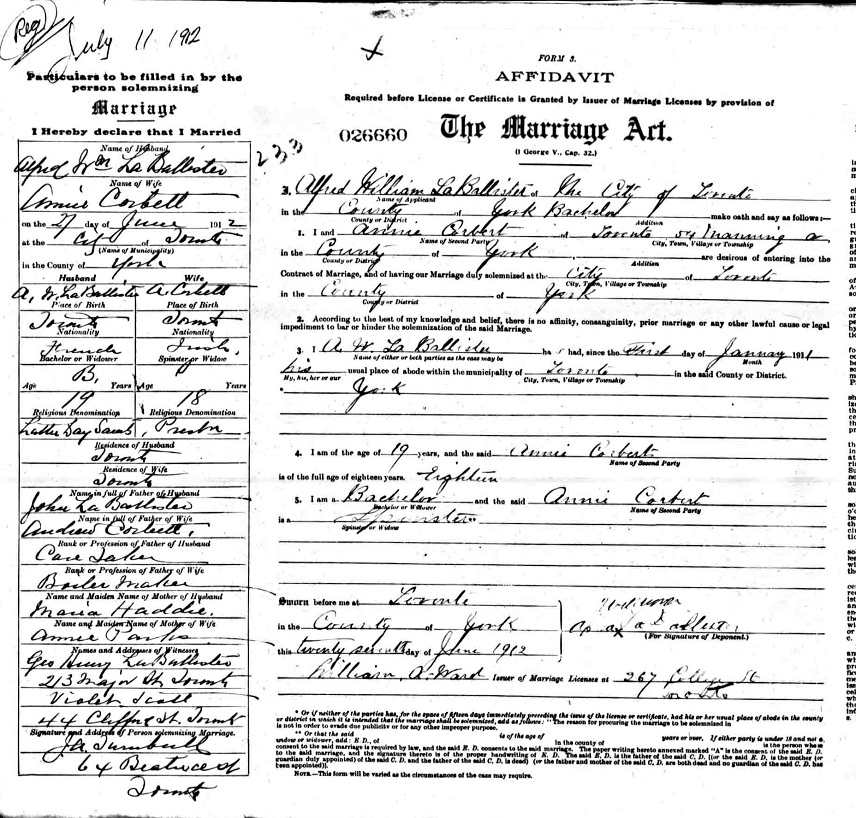 Reg
July 11 1912
Particulars to be filled in by the
person solemnizing
Marriage
I Hereby declare that I Married
Name of Husband
Alfred Wm La Ballister
Name of Wife
Annie Corbett
on the 27 day of June 1912
at the City of Toronto
(Name of Municipality)
in the County of York
Husband Wife
A. W. LaBallister A. Corbett
Place of Birth Place of Birth
Toronto Toronto
Nationality Nationality
French Irish
Bachelor or Widower Spinster or Widow
B.
Age Years Age Years
19 18
Religious Denomination Religious Denomination
Latter Day Saints, Presbn
Residence of Husband
Toronto
Residence of Wife
Toronto
Name in full of Father of Husband
John La Ballister
Name in full of Father of Wife
Andrew Corbett,
Rank or Profession of Father of Husband
Care Taker
Rank or Profession of Father of Wife
Boiler Maker
Name and Maiden Name of Mother of Husband
Maria Haddie.
Name and Maiden Name of Mother of Wife
Annie Parks
Names and Addresses of Witnesses
Geo Henry LaBallister
213 Major St. Toronto
Violet Scott
44 Clifford St. Toronto
Signature and Address of Person solemnizing Marriage.
J A Turnbull
64 Beatrice St
Toronto
FORM 3.
AFFIDAVIT
Required before License or Certificate is Granted by Issuer of Marriage Licenses by provision of
026660 The Marriage Act.
233
(1 George V., Cap. 32.)
I, Alfred William LaBallister of the City of Toronto
Name of Applicant
in the County of York Bachelor make oath and say as follows:—
County or District Addition
1. I and Annie Corbert of Toronto 54 Manning
Name of Second Party City, Town, Village or Township
in the County of York are desirous of entering into the
County or District Addition
Contract of Marriage, and of having our Marriage duly solemnized at the City of Toronto
City, Town, Village or Township
in the County of York
County or District
2. According to the best of my knowledge and belief, there is no affinity, consanguinity, prior marriage or any other lawful cause or legal
impediment to bar or hinder the solemnization of the said Marriage.
3. I A. W. La Ballister had, since the First day of January 1911
Name of either or both parties as the case may be Month
his usual place of abode within the municipality of Toronto in the said County or District.
My, his, her or our City, Town, Village or Township
York
4. I am of the age of 19 years, and the said Annie Corbert
Name of Second Party
is of the full age of eighteen years. Eighteen
5. I am a Bachelor and the said Annie Corbert
Bachelor or Widower Name of Second Party
is a Spinster
Spinster or Widow
Sworn before me at Toronto
in the County of York
(For Signature of Deponent.)
this twenty seventh day of June 1912
William A. Ward Issuer of Marriage Licenses at 267 College St
Toronto
* Or if neither of the parties has, for the space of fifteen days immediately preceding the issue of the license or certificate, had his or her usual place of abode in the county
or district in which it is intended that the marriage shall be solemnized, add as follows: "The reason for procuring the marriage to be solemnized in
is not in order to evade due publicity or for any other improper purpose.
** Or that the said is of the age of years or over. If either party is under 18 and not a
window or widower, add: E. D., of in the county of is the person whose
consent to the said marriage is required by law, and the said E. D. consents to the said marriage. The paper writing hereto annexed marked "A" is the consent of the said E. D.
to the said marriage, and the signature thereto is of the proper handwriting of E. D. The said E. D. is the father of the said C. D. [(or the said E. D. is the mother (or
guardian duly appointed) of the said C. D. and the father of the said C. D. is dead) (or the father and mother of the said C. D. are both dead and no guardian of the said C. D. has
been appointed)].
NOTE.—This form will be varied as the circumstances of the case may require.